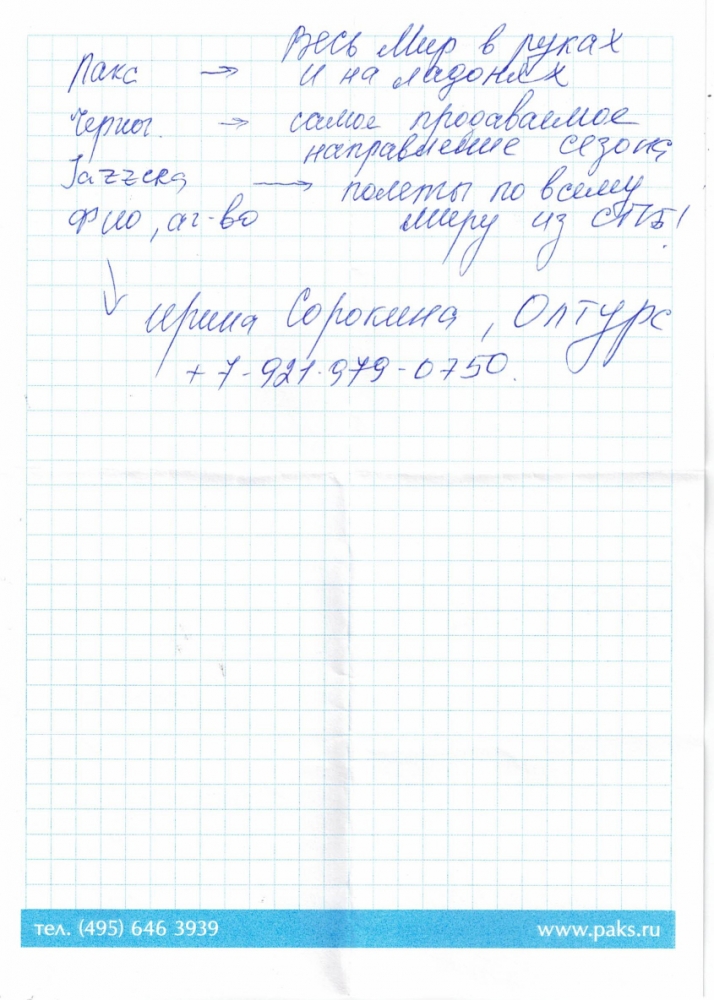 Весь Мир в руках
Пакс → и на ладонях
Черног. → самое продаваемое
направление сезона
Jazzera → полеты по всему
ФИО, аг-во миру из СПБ!
Ирина Сорокина, Олтурс
+7-921-979-0750.
тел. (495) 646 3939 www.paks.ru